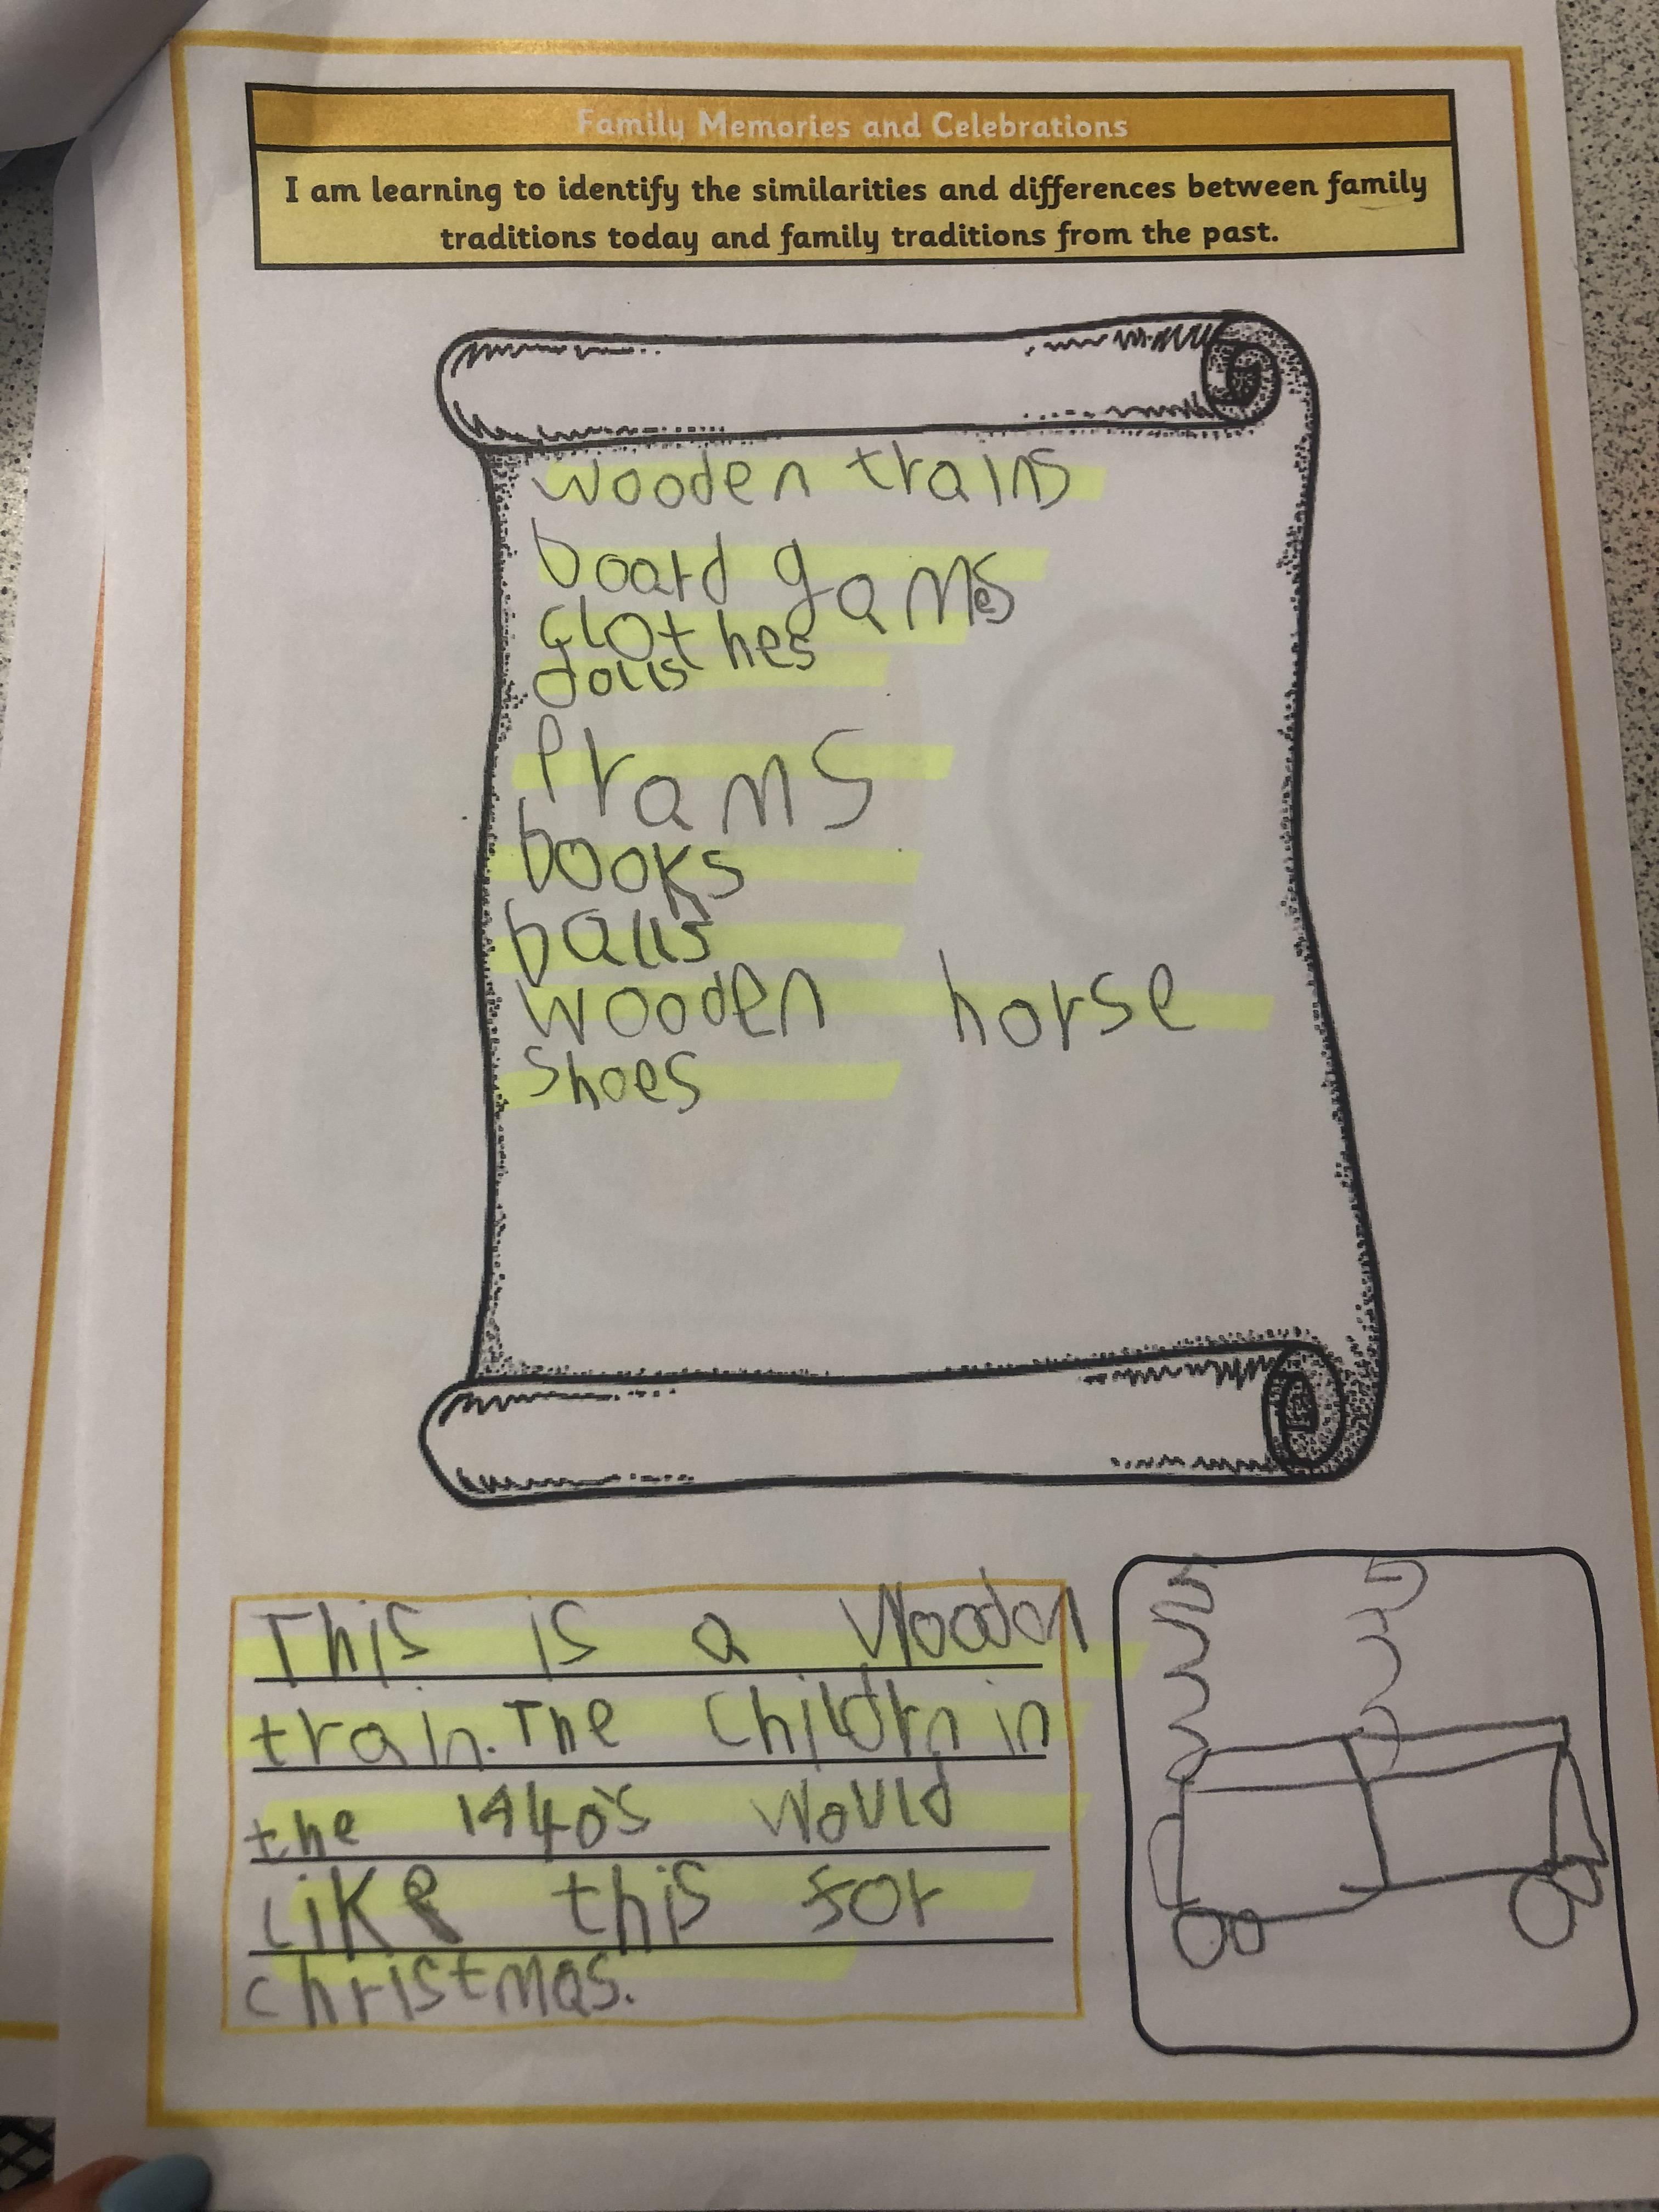 Family Memories and Celebrations
I am learning to identify the similarities and differences between family
traditions today and family traditions from the past.
wooden trains
board games
clothes
dolls
Prams
books
balls
wooden horse
shoes
This is a Wooden
train. The Childrn in
the 1940's would
like this for
christmas.